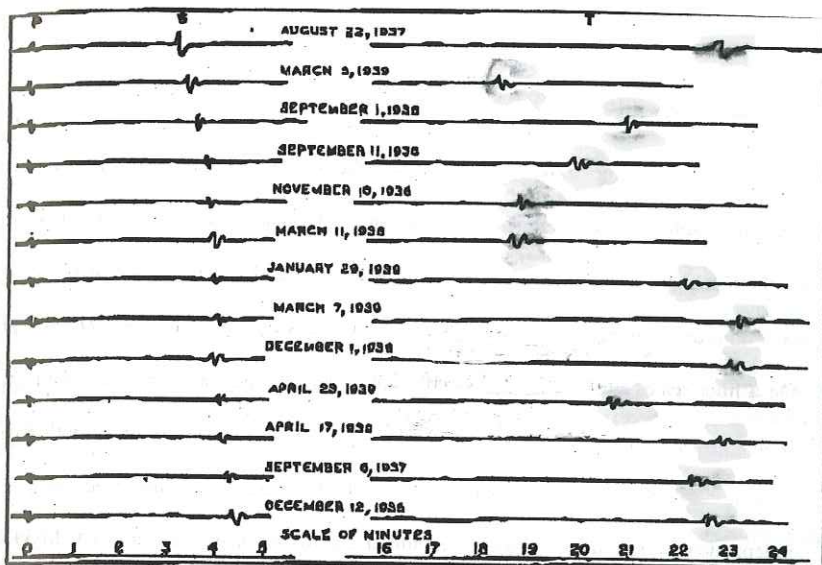 P S T
AUGUST 22, 1937
MARCH 5, 1939
SEPTEMBER 1, 1938
SEPTEMBER 11, 1938
NOVEMBER 10, 1936
MARCH 11, 1938
JANUARY 29, 1939
MARCH 7, 1939
DECEMBER 1, 1938
APRIL 23, 1939
APRIL 17, 1938
SEPTEMBER 6, 1937
DECEMBER 12, 1936
SCALE OF MINUTES
0 1 2 3 4 5 16 17 18 19 20 21 22 23 24